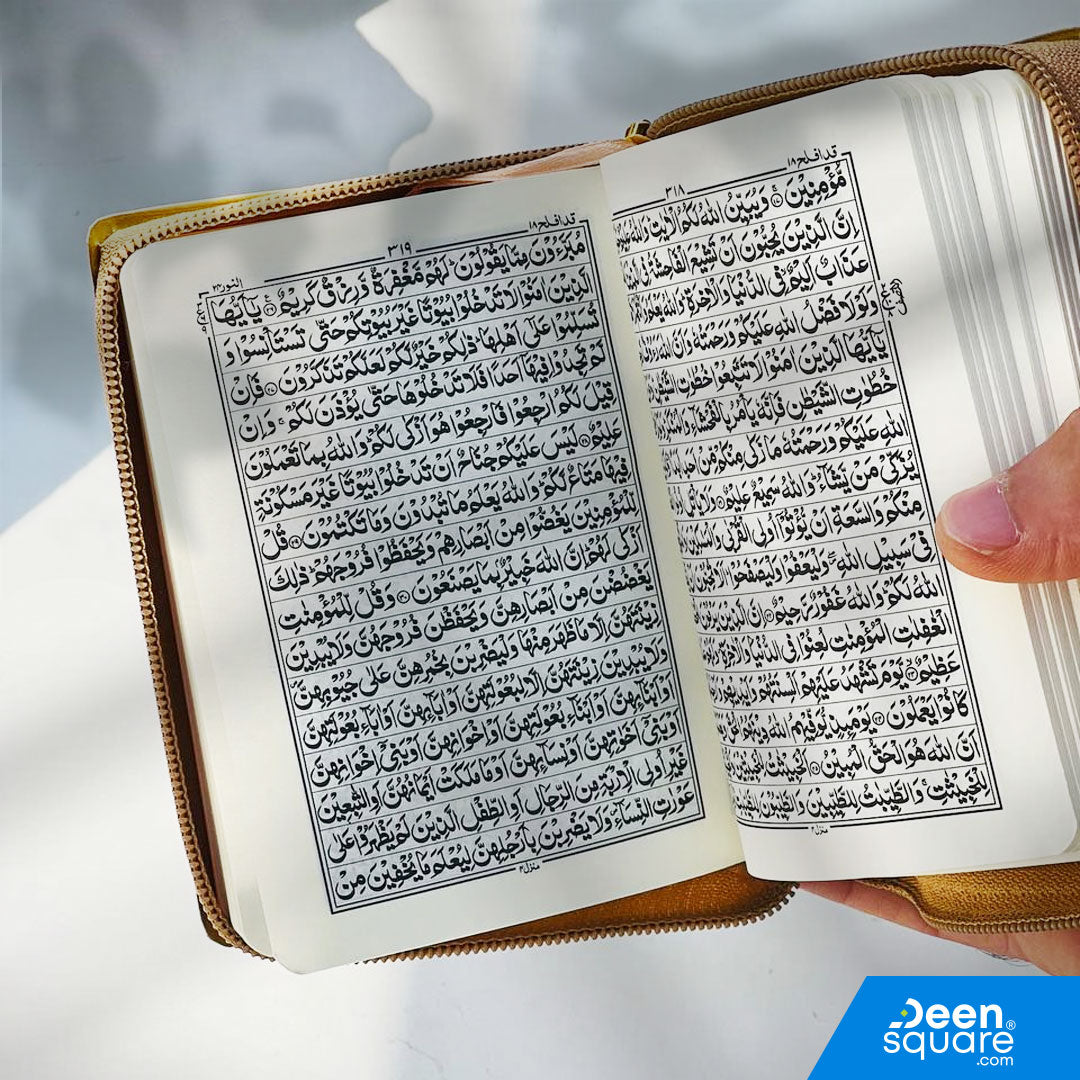 قد افلح ١٨
٣١٨
مُّؤْمِنِيْنَ ۝١٧ وَيُبَيِّنُ اللهُ لَكُمُ الْاٰيٰتِ وَاللهُ
اِنَّ الَّذِيْنَ يُحِبُّوْنَ اَنْ تَشِيْعَ الْفَاحِشَةُ فِى
عَذَابٌ اَلِيْمٌ فِى الدُّنْيَا وَالْاٰخِرَةِ وَاللهُ يَعْلَمُ
وَلَوْلَا فَضْلُ اللهِ عَلَيْكُمْ وَرَحْمَتُهٗ وَاَنَّ اللهَ
يٰٓاَيُّهَا الَّذِيْنَ اٰمَنُوْا لَا تَتَّبِعُوْا خُطُوٰتِ
خُطُوٰتِ الشَّيْطٰنِ فَاِنَّهٗ يَاْمُرُ بِالْفَحْشَآءِ وَالْمُنْكَرِ
اللهِ عَلَيْكُمْ وَرَحْمَتُهٗ مَا زَكٰى مِنْكُمْ مِّنْ اَحَدٍ
يُزَكِّىْ مَنْ يَّشَآءُ وَاللهُ سَمِيْعٌ عَلِيْمٌ ۝٢١ وَلَا
مِنْكُمْ وَالسَّعَةِ اَنْ يُّؤْتُوْٓا اُولِى الْقُرْبٰى وَالْمَسٰكِيْنَ
فِىْ سَبِيْلِ اللهِ وَلْيَعْفُوْا وَلْيَصْفَحُوْا اَلَا تُحِبُّوْنَ
اللهُ لَكُمْ وَاللهُ غَفُوْرٌ رَّحِيْمٌ ۝٢٢ اِنَّ الَّذِيْنَ يَرْمُوْنَ
الْغٰفِلٰتِ الْمُؤْمِنٰتِ لُعِنُوْا فِى الدُّنْيَا وَالْاٰخِرَةِ
عَظِيْمٌ ۝٢٣ يَّوْمَ تَشْهَدُ عَلَيْهِمْ اَلْسِنَتُهُمْ وَاَيْدِيْهِمْ
كَانُوْا يَعْمَلُوْنَ ۝٢٤ يَوْمَئِذٍ يُّوَفِّيْهِمُ اللهُ دِيْنَهُمُ الْحَقَّ
اَنَّ اللهَ هُوَ الْحَقُّ الْمُبِيْنُ ۝٢٥ اَلْخَبِيْثٰتُ
لِلْخَبِيْثٰتِ وَالطَّيِّبٰتُ لِلطَّيِّبِيْنَ وَالطَّيِّبُوْنَ
منزل ٤
قد افلح ١٨
٣١٩
النور ٢٤
مُبَرَّءُوْنَ مِمَّا يَقُوْلُوْنَ لَهُمْ مَّغْفِرَةٌ وَّرِزْقٌ كَرِيْمٌ ۝٢٦ يٰٓاَيُّهَا
الَّذِيْنَ اٰمَنُوْا لَا تَدْخُلُوْا بُيُوْتًا غَيْرَ بُيُوْتِكُمْ حَتّٰى تَسْتَاْنِسُوْا وَ
تُسَلِّمُوْا عَلٰٓى اَهْلِهَا ذٰلِكُمْ خَيْرٌ لَّكُمْ لَعَلَّكُمْ تَذَكَّرُوْنَ ۝٢٧ فَاِنْ
لَّمْ تَجِدُوْا فِيْهَآ اَحَدًا فَلَا تَدْخُلُوْهَا حَتّٰى يُؤْذَنَ لَكُمْ وَاِنْ
قِيْلَ لَكُمُ ارْجِعُوْا فَارْجِعُوْا هُوَ اَزْكٰى لَكُمْ وَاللهُ بِمَا تَعْمَلُوْنَ
عَلِيْمٌ ۝٢٨ لَيْسَ عَلَيْكُمْ جُنَاحٌ اَنْ تَدْخُلُوْا بُيُوْتًا غَيْرَ مَسْكُوْنَةٍ
فِيْهَا مَتَاعٌ لَّكُمْ وَاللهُ يَعْلَمُ مَا تُبْدُوْنَ وَمَا تَكْتُمُوْنَ ۝٢٩ قُلْ
لِّلْمُؤْمِنِيْنَ يَغُضُّوْا مِنْ اَبْصَارِهِمْ وَيَحْفَظُوْا فُرُوْجَهُمْ ذٰلِكَ
اَزْكٰى لَهُمْ اِنَّ اللهَ خَبِيْرٌۢ بِمَا يَصْنَعُوْنَ ۝٣٠ وَقُلْ لِّلْمُؤْمِنٰتِ
يَغْضُضْنَ مِنْ اَبْصَارِهِنَّ وَيَحْفَظْنَ فُرُوْجَهُنَّ وَلَا يُبْدِيْنَ
زِيْنَتَهُنَّ اِلَّا مَا ظَهَرَ مِنْهَا وَلْيَضْرِبْنَ بِخُمُرِهِنَّ عَلٰى جُيُوْبِهِنَّ
وَلَا يُبْدِيْنَ زِيْنَتَهُنَّ اِلَّا لِبُعُوْلَتِهِنَّ اَوْ اٰبَآئِهِنَّ اَوْ اٰبَآءِ بُعُوْلَتِهِنَّ
اَوْ اَبْنَآئِهِنَّ اَوْ اَبْنَآءِ بُعُوْلَتِهِنَّ اَوْ اِخْوَانِهِنَّ اَوْ بَنِيْٓ اِخْوَانِهِنَّ
اَوْ بَنِيْٓ اَخَوٰتِهِنَّ اَوْ نِسَآئِهِنَّ اَوْ مَا مَلَكَتْ اَيْمَانُهُنَّ اَوِ التّٰبِعِيْنَ
غَيْرِ اُولِى الْاِرْبَةِ مِنَ الرِّجَالِ اَوِ الطِّفْلِ الَّذِيْنَ لَمْ يَظْهَرُوْا عَلٰى
عَوْرٰتِ النِّسَآءِ وَلَا يَضْرِبْنَ بِاَرْجُلِهِنَّ لِيُعْلَمَ مَا يُخْفِيْنَ مِنْ
منزل ٤
Deen
square®
.com